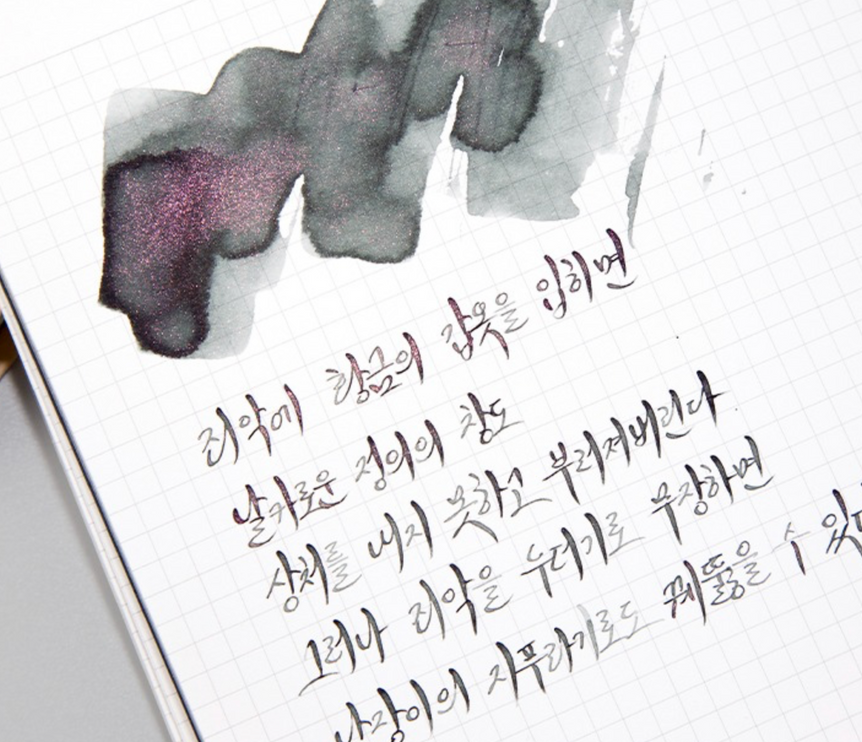 죄악에 황금의 갑옷을 입하면
날카로운 정의의 창도
상처를 내지 못하고 부러져버린다
그러나 죄악을 누더기로 무장하면
난장이의 지푸라기로도 꿰뚫을 수 있다